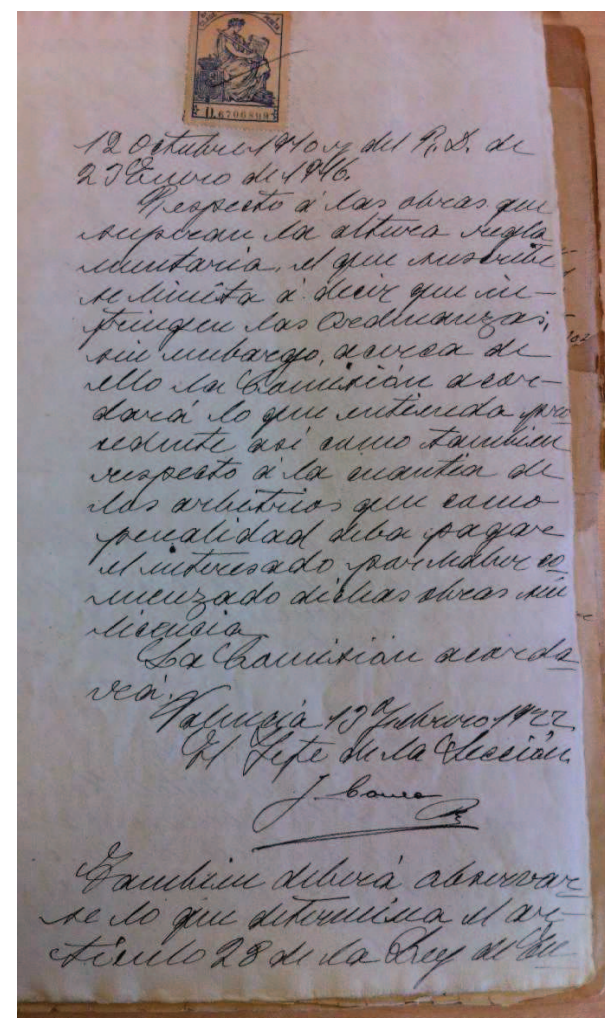 0.6706809
12 Octubre 1910 y del R. D. de
23 Enero de 1916.
Respecto á las obras que
superan la altura regla
mentaria, el que suscribe
se limita á decir que in-
fringen las Ordenanzas;
sin embargo, acerca de
ello la Comisión acor-
dará lo que entienda pro
cedente así como tambien
respecto á la cuantia de
los arbitrios que como
penalidad deba pagar
el interesado por haber co
menzado dichas obras sin
licencia.
La Comisión acorda
rá.
Valencia 13 Febrero 1922
El Jefe de la Sección
J.
Tambien deberá observar
se lo que determina el ar-
tículo 28 de la Ley de En